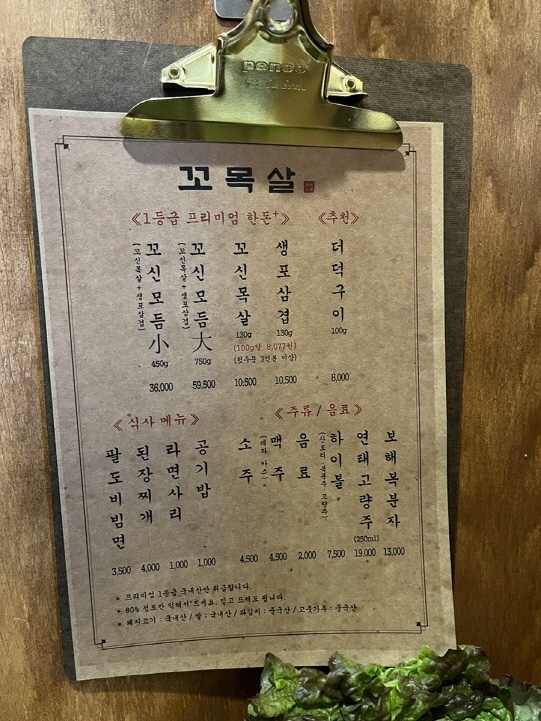 penco
꼬목살
《1등급 프리미엄 한돈+》
꼬신모듬小
(꼬신목살+생포삼겹)
450g
36,000
꼬신모듬大
(꼬신목살+생포삼겹)
750g
59,500
꼬신목살
130g
10,500
생포삼겹
130g
10,500
(100g당 8,077원)
(첫주문 3인분 이상)
《추천》
더덕구이
100g
8,000
《식사 메뉴》
팔도비빔면
3,500
된장찌개
4,000
라면사리
1,000
공기밥
1,000
《주류/음료》
소주
4,500
맥주
(테라, 카스)
4,500
음료
2,000
하이볼
7,500
연태고량주
(250ml)
19,000
보해복분자
13,000
프리미엄 1등급 국내산만 취급합니다.
80% 정도만 익혀서 드세요. 믿고 드셔도 됩니다.
돼지고기 : 국내산 / 쌀 : 국내산 / 파김치 : 중국산 / 고춧가루 : 중국산